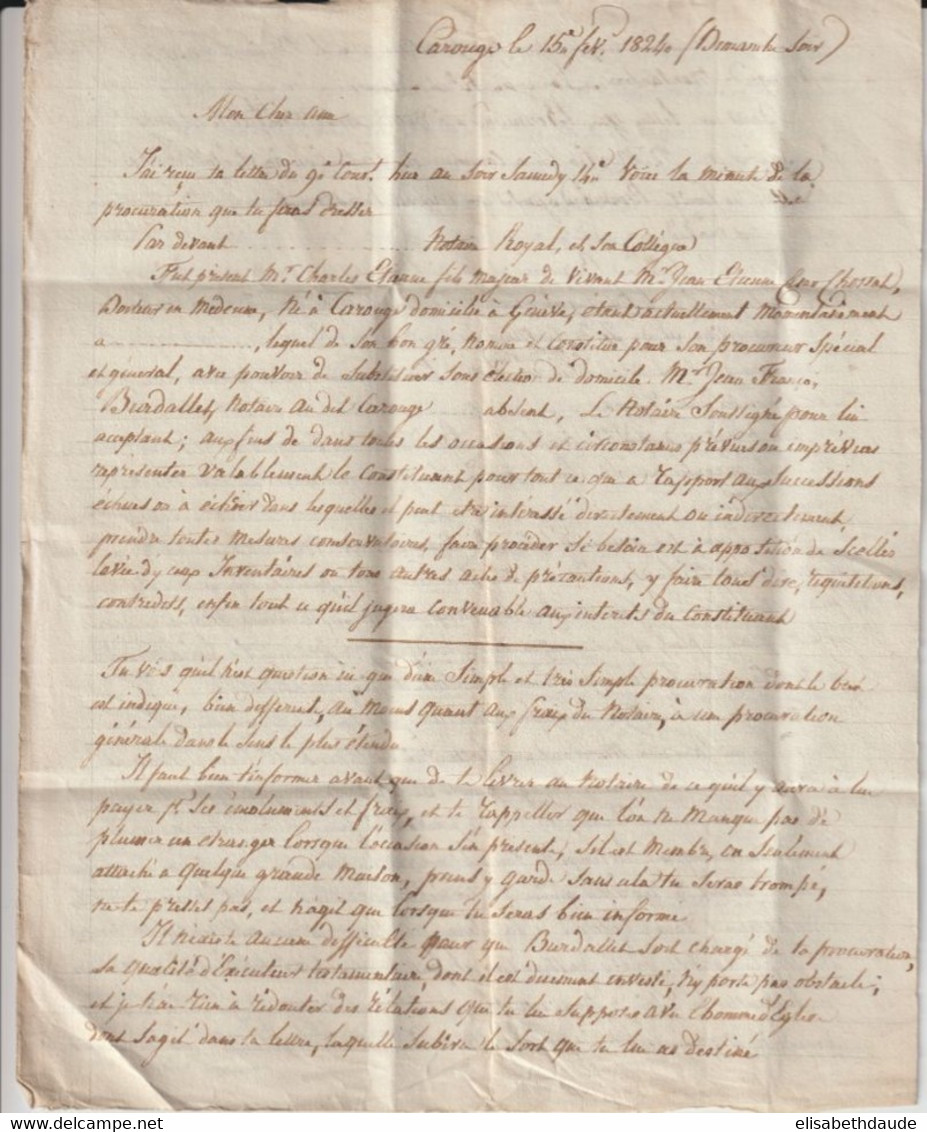 Carouge le 15e fev. 1824 (Dimanche soir)
Mon cher ami
J'ai reçu ta lettre du 9e Cour.t hier au soir Samedy 14e Voici la minute de la
procuration que tu feras dresser
Par devant ........................ Notaire Royal, et son Collègue
Fut présent Mr. Charles Etienne fils majeur de vivant Mr. Jean Etienne Chossat,
Docteur en Medecine, Né à Carouge domicilié à Genève, étant actuellement Momentanément
a ........................, lequel de son bon gré, Nomme et Constitue pour son procureur Spécial
et général, avec pouvoir de Substituer sous élection de domicile. Mr. Jean Franço.
Burdallet, Notaire au dit Carouge absent, Le Notaire Soussigné pour lui
acceptant; aux fins de dans toutes les occasions et circonstances prévues ou imprévues
représenter valablement le Constituant pour tout ce qui a rapport aux Successions
échues ou à échoir dans lesquelles il peut etre intéressé directement ou indirectement,
prendre toutes mesures conservatoires, faire procéder si besoin est à apposition de Scellés
levée d'yceux Inventaires ou tous autres actes de précautions, y faire tous dires, requisitions,
contredits, enfin tout ce qu'il jugera convenable aux interets du Constituant
Tu vois qu'il n'est question ici que d'une Simple et très Simple procuration dont le but
est indiqué, bien different, du Moins quant aux fraix du Notaire, à une procuration
générale dans le sens le plus étendu
Il faut bien t'informer avant que de te livrer au Notaire de ce qu'il y aura à lui
payer p.r ses émoluments et fraix, et te rappeller que l'on ne Manque pas de
plumer un etranger lorsque l'occasion s'en présente, S'il est Membre, ou Seulement
attaché a quelque grande Maison, prens y garde sans cela tu seras trompé,
ne te presses pas, et n'agit que lorsque tu seras bien informé
Il n'existe aucune difficulté pour que Burdallet soit chargé de la procuration,
sa qualité d'Exécuteur testamentaire, dont il est duement investi, n'y porte pas obstacle;
et je n'ai rien à rédouter des rélations que tu lui supposes avec l'homme d'Eglise
dont s'agit dans ta lettre, laquelle subira le sort que tu lui as destiné
elisabethdaude